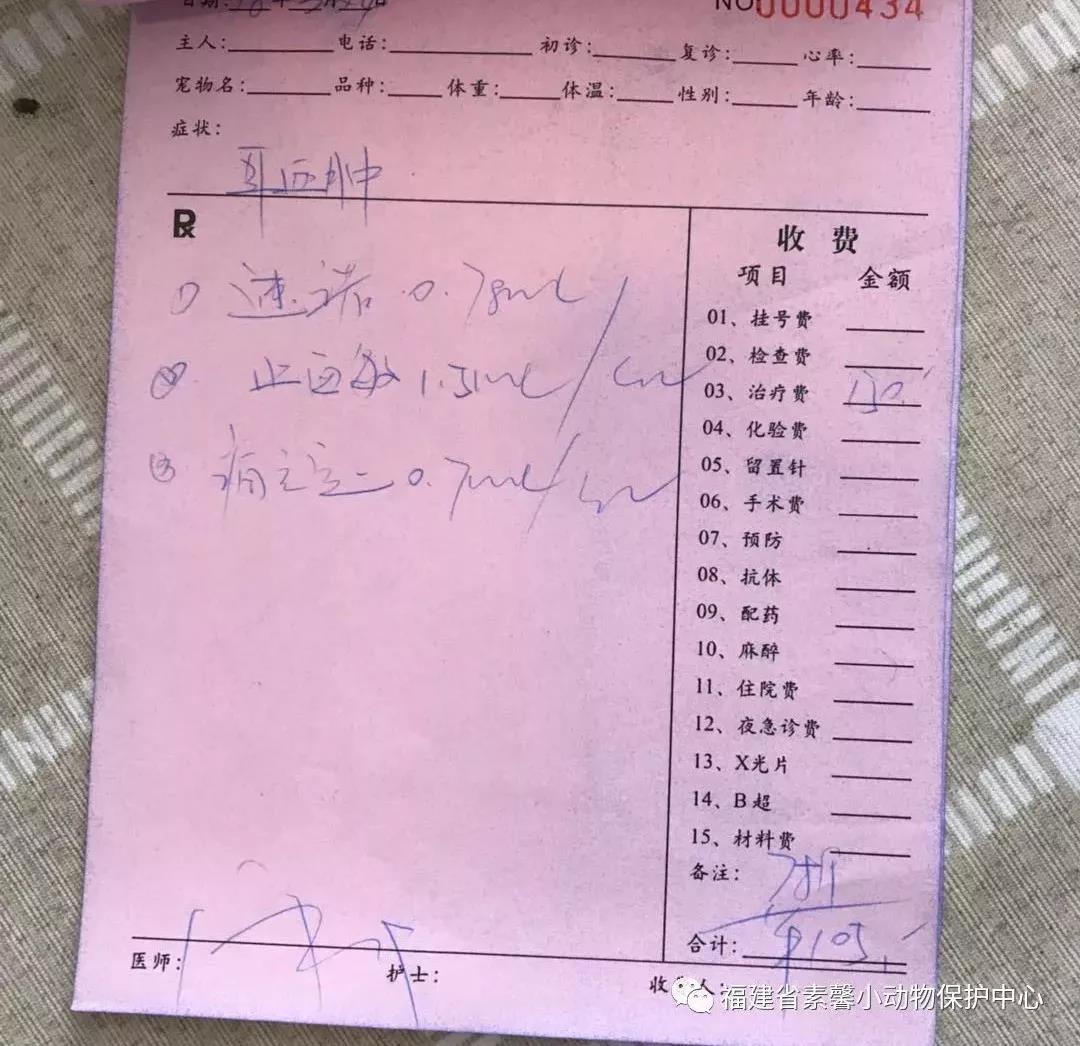 NO0000434
主人: 电话: 初诊: 复诊: 心率:
宠物名: 品种: 体重: 体温: 性别: 年龄:
症状:
耳血肿
R
① 速诺 0.78ml/
② 止血敏 1.5ml/
③ 痛立定 0.7ml/
收 费
项目 金额
01、挂号费
02、检查费
03、治疗费 150.
04、化验费
05、留置针
06、手术费
07、预防
08、抗体
09、配药
10、麻醉
11、住院费
12、夜急诊费
13、X光片
14、B超
15、材料费
备注: 7折
合计: 105.
医师: 护士: 收 人:
福建省素馨小动物保护中心